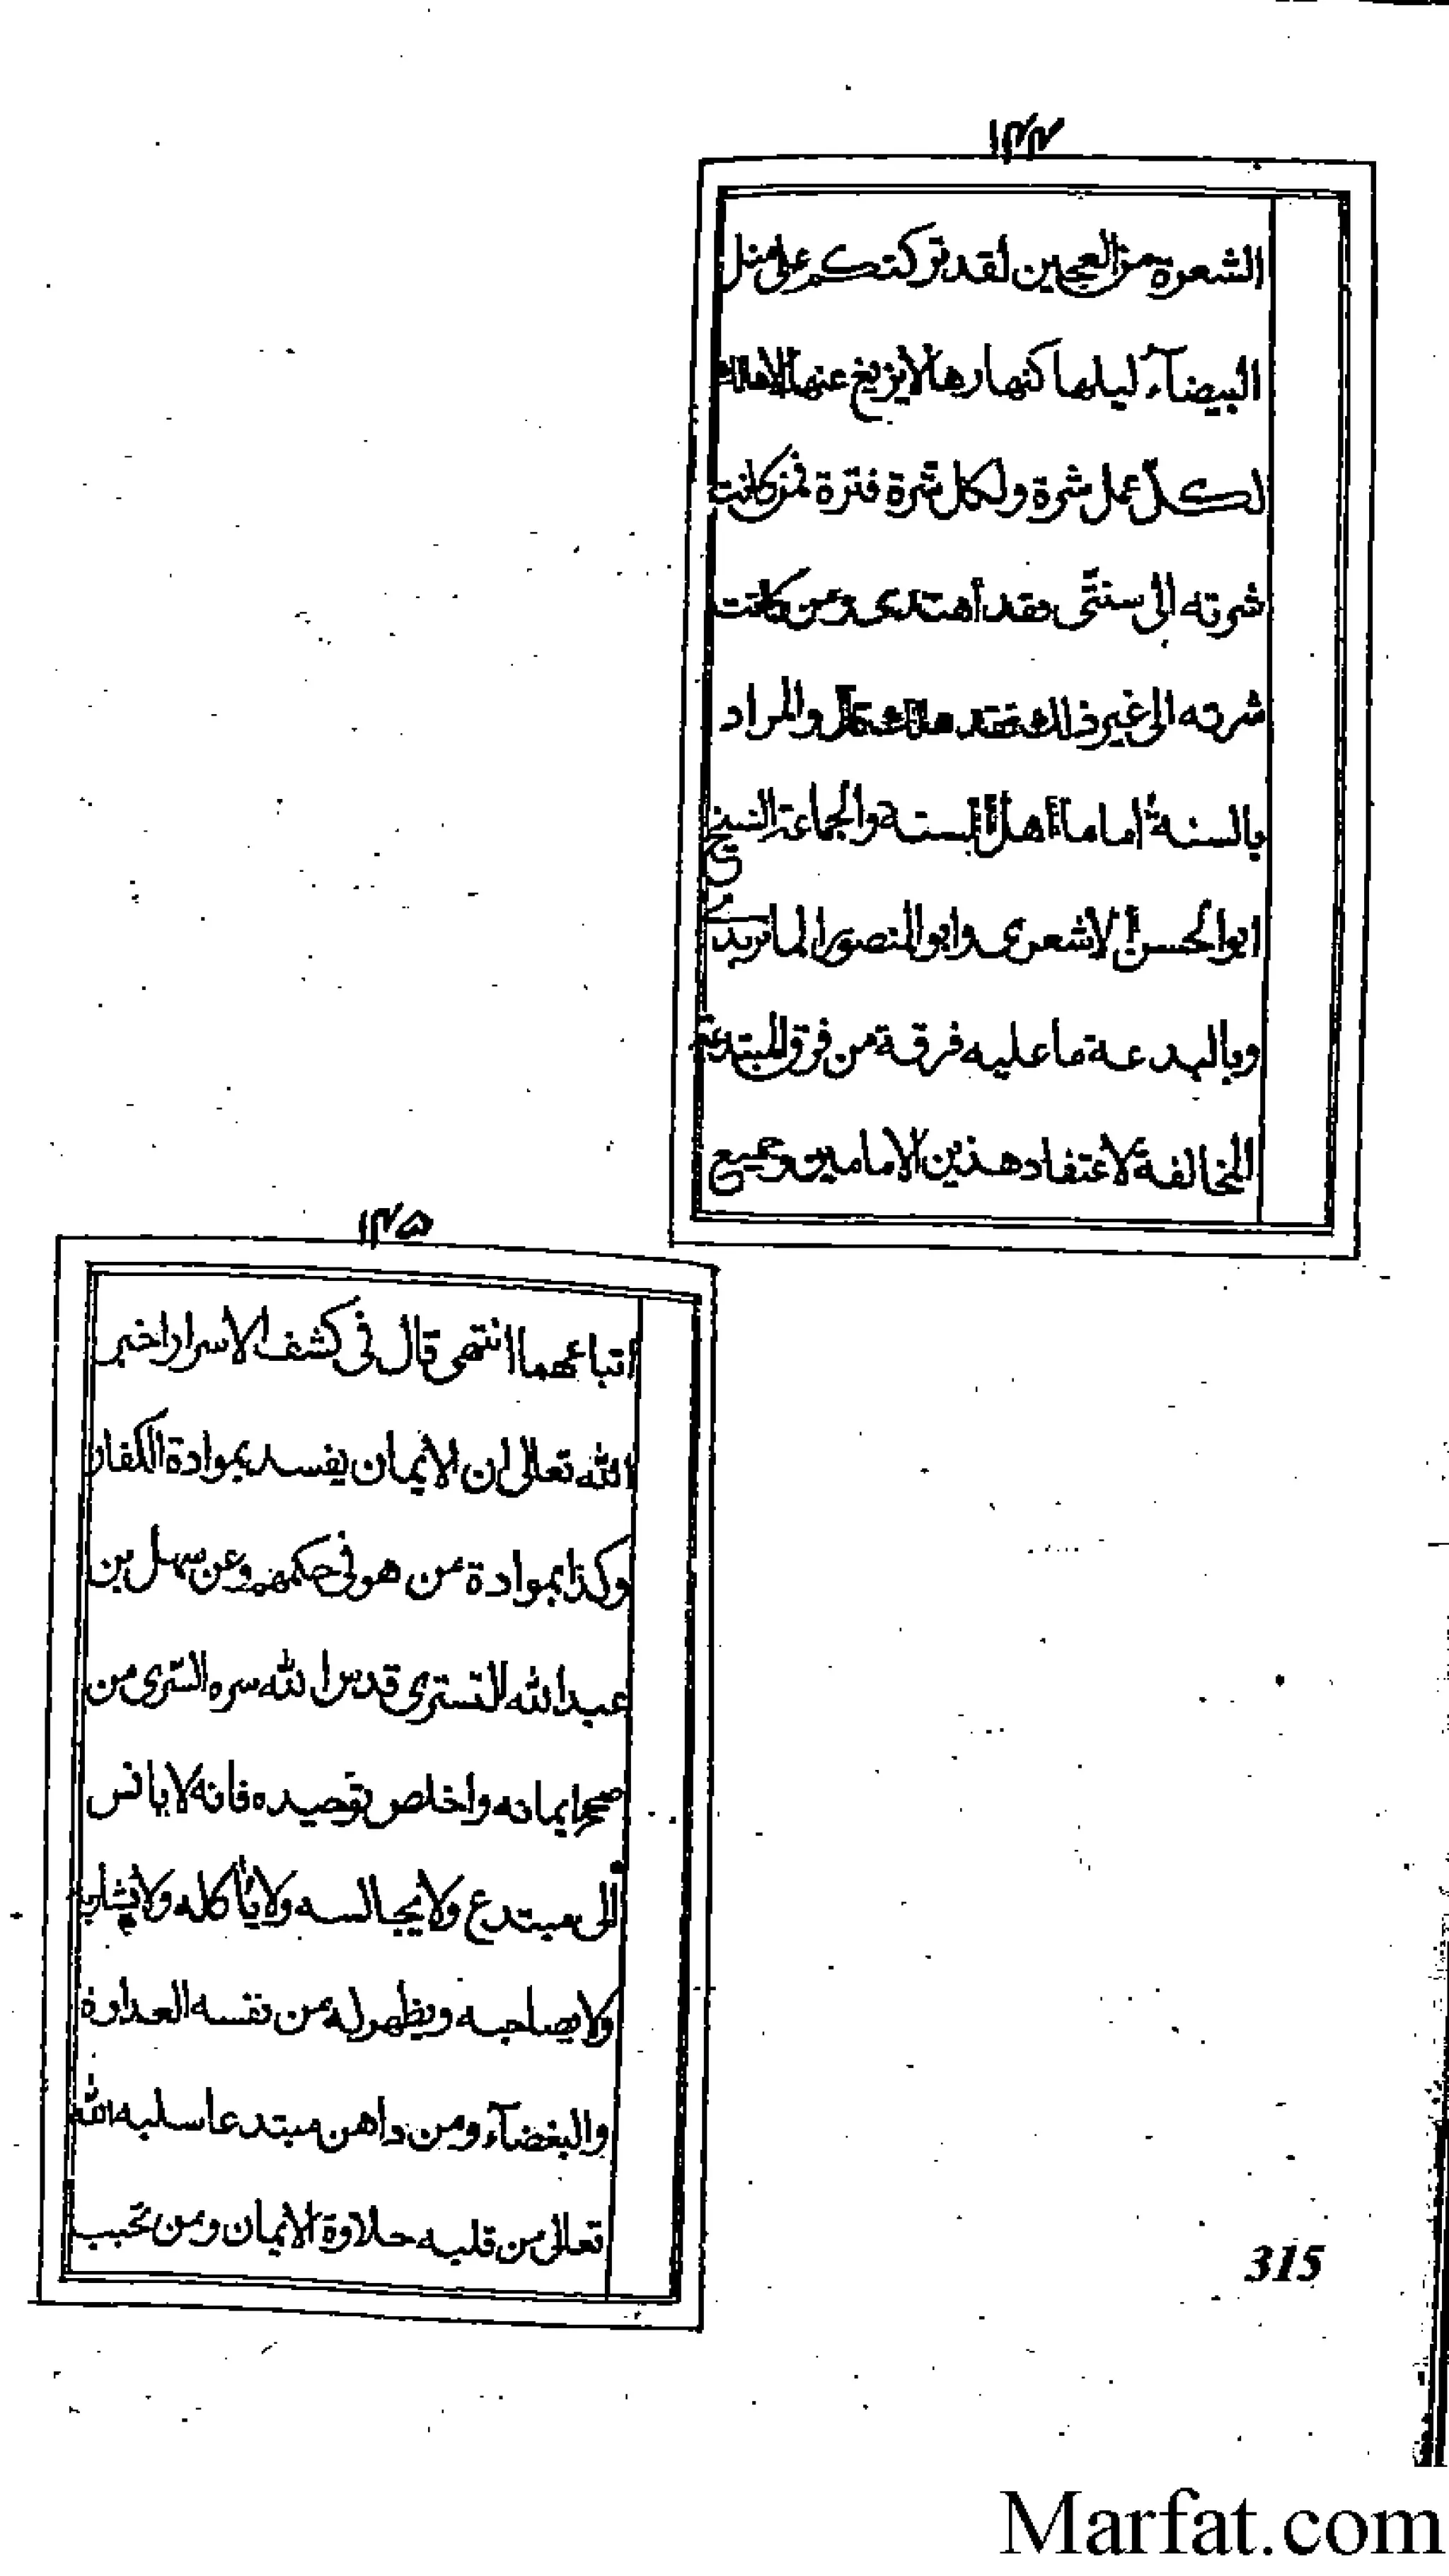 ١٤٤
الشعرة من العجين لقد تركتكم على مثل
البيضآء ليلها كنهارها لا يزيغ عنها الا هالك
لكلّ عمل شرة ولكل شرة فترة فمن كانت
شرته الى سنتى فقد اهتدى ومن كانت
شرته الى غير ذلك فقد هلك قال والمراد
بالسنة اماما اهل السنة والجماعة الشيخ
ابو الحسن الاشعرى وابو المنصور الماتريدى
وبالبدعة ما عليه فرقة من فرق المبتدعة
المخالفة لاعتقاد هذين الامامين وجميع
١٤٥
اتباعهما انتهى قال فى كشف الاسرار اخبر
الله تعالى ان الايمان يفسد بموادة الكفار
وكذا بموادة من هو فى حكمهم وعن سهل بن
عبد الله التسترى قدس الله سره السّرى من
صحح ايمانه واخلص توحيده فانه لا يانس
الى مبتدع ولا يجالسه ولا يأكله ولا يشاربه
ولا يصاحبه ويظهر له من نفسه العداوة
والبغضآء ومن داهن مبتدعا سلبه الله
تعالى من قلبه حلاوة الايمان ومن تحبب
315
Marfat.com